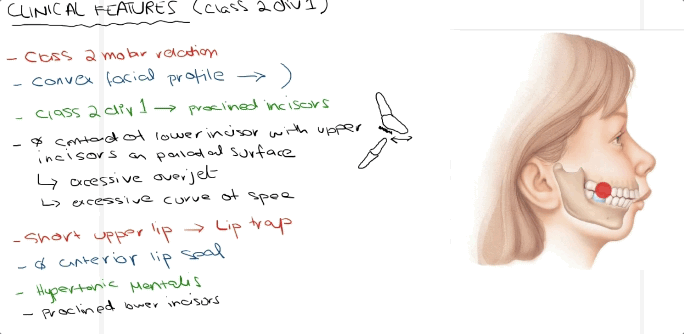 CLINICAL FEATURES (class 2 div 1)
- Class 2 molar relation
- convex facial profile → )
- class 2 div 1 → proclined incisors
- ø contact of lower incisor with upper
incisors on palatal surface
↳ excessive overjet
↳ excessive curve of spee
- Short upper lip → Lip trap
- ø anterior lip seal
- Hypertonic Mentalis
- Proclined lower incisors